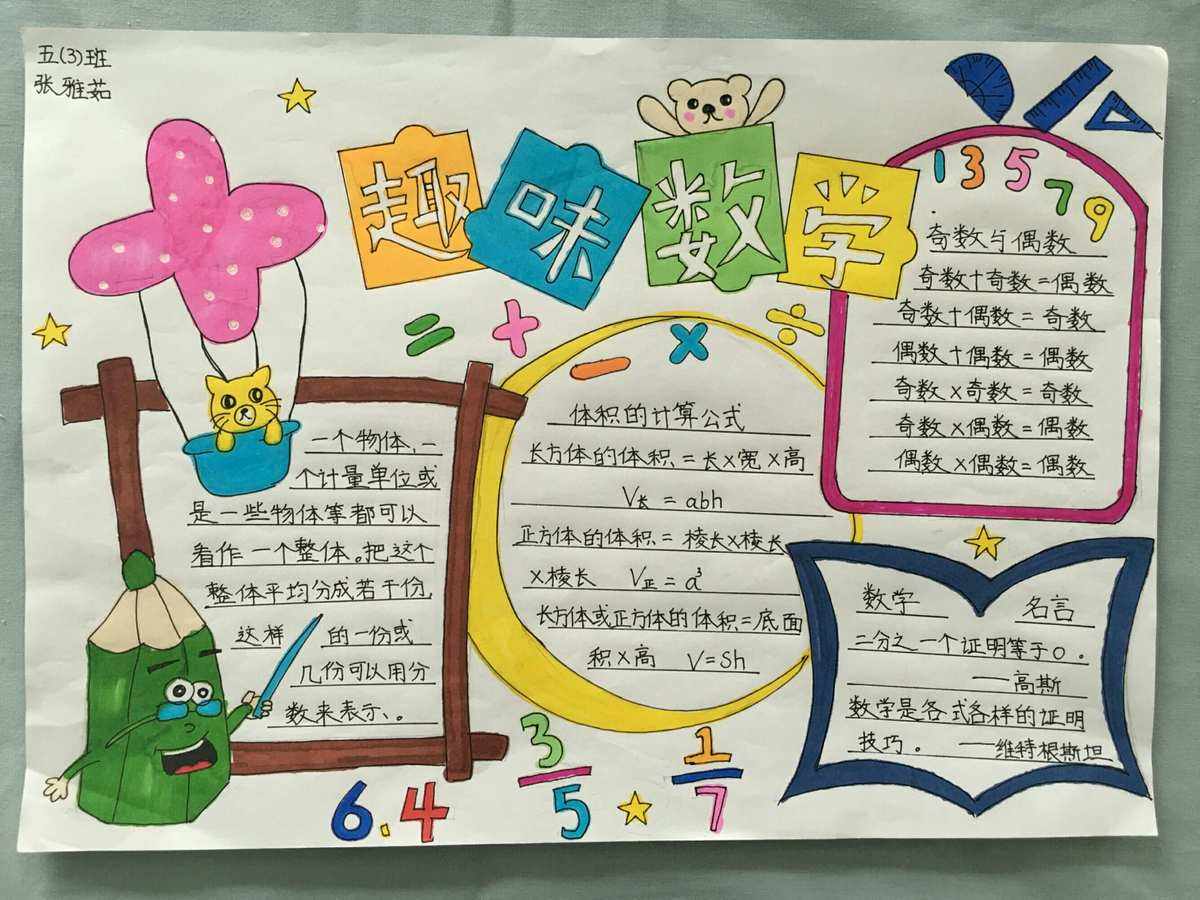 五(3)班
张雅茹
趣味数学
= + - × ÷
1 3 5 7 9
奇数与偶数
奇数+奇数=偶数
奇数+偶数=奇数
偶数+偶数=偶数
奇数×奇数=奇数
奇数×偶数=偶数
偶数×偶数=偶数
一个物体、一
个计量单位或
是一些物体等都可以
看作一个整体。把这个
整体平均分成若干份,
这样 的一份或
几份可以用分
数来表示、。
体积的计算公式
长方体的体积=长×宽×高
V长=abh
正方体的体积=棱长×棱长
×棱长 V正=a³
长方体或正方体的体积=底面
积×高 V=Sh
数学 名言
二分之一个证明等于0。
——高斯
数学是各式各样的证明
技巧。 ——维特根斯坦
6.4
3/5
1/7